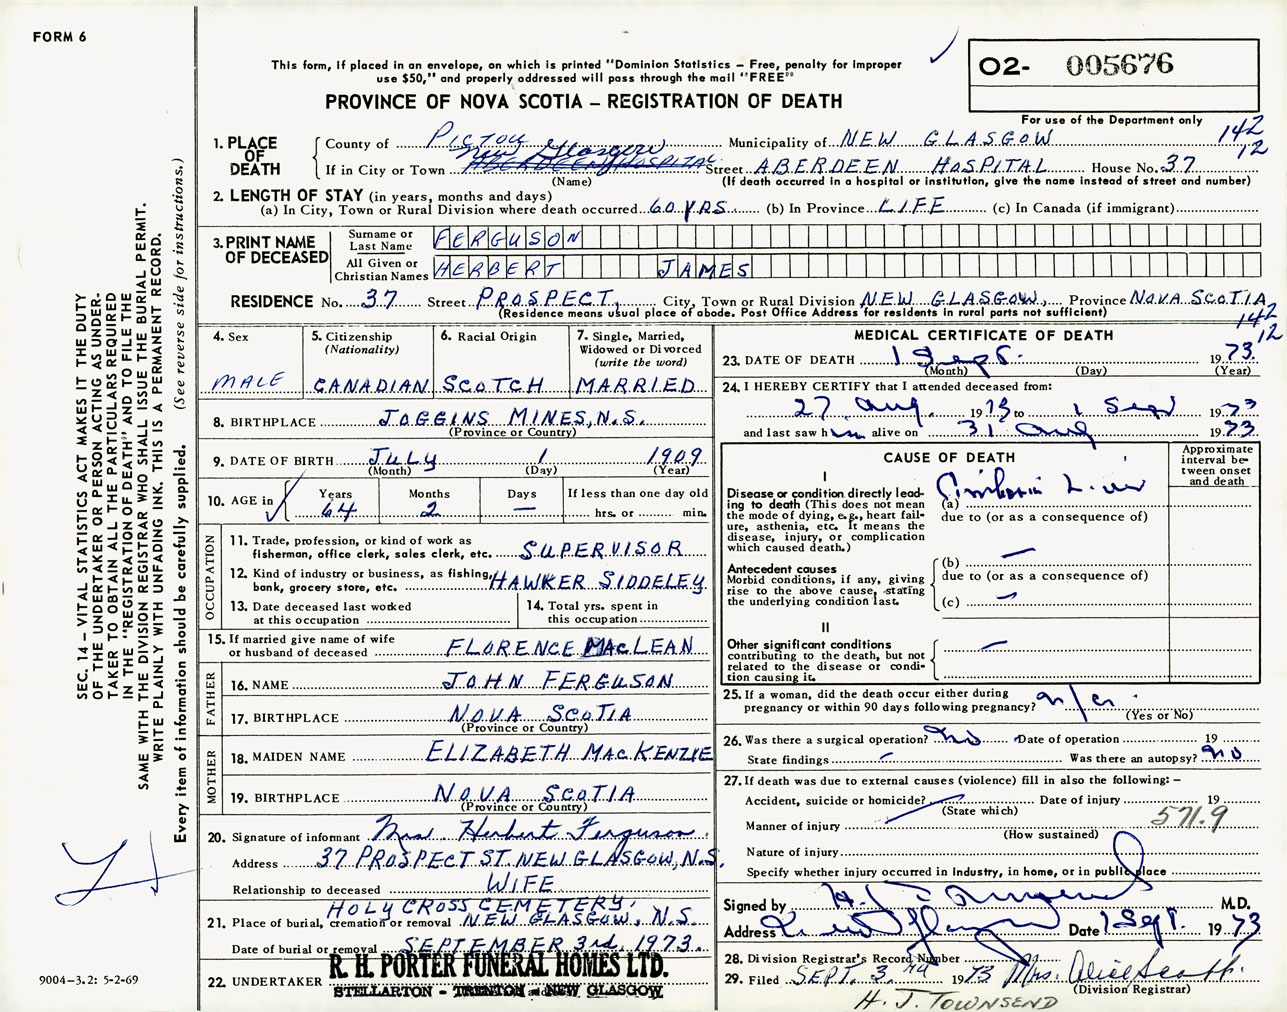 FORM 6
This form, if placed in an envelope, on which is printed "Dominion Statistics – Free, penalty for improper
use $50," and properly addressed will pass through the mail "FREE"
PROVINCE OF NOVA SCOTIA – REGISTRATION OF DEATH
O2- 005676
For use of the Department only
142
12
1. PLACE OF DEATH
County of PICTOU Municipality of NEW GLASGOW
If in City or Town New Glasgow ABERDEEN HOSPITAL Street ABERDEEN HOSPITAL House No. 37
(Name) (If death occurred in a hospital or institution, give the name instead of street and number)
2. LENGTH OF STAY (in years, months and days)
(a) In City, Town or Rural Division where death occurred 60 YRS. (b) In Province LIFE (c) In Canada (if immigrant)
3. PRINT NAME OF DECEASED
Surname or Last Name FERGUSON
All Given or Christian Names HERBERT JAMES
RESIDENCE No. 37 Street PROSPECT, City, Town or Rural Division NEW GLASGOW, Province NOVA SCOTIA
(Residence means usual place of abode. Post Office Address for residents in rural parts not sufficient)
142
12
4. Sex MALE
5. Citizenship (Nationality) CANADIAN
6. Racial Origin SCOTCH
7. Single, Married, Widowed or Divorced (write the word) MARRIED
8. BIRTHPLACE JOGGINS MINES, N.S.
(Province or Country)
9. DATE OF BIRTH JULY 1 1909
(Month) (Day) (Year)
10. AGE in Years 64 Months 2 Days — If less than one day old hrs. or min.
OCCUPATION
11. Trade, profession, or kind of work as fisherman, office clerk, sales clerk, etc. SUPERVISOR
12. Kind of industry or business, as fishing, bank, grocery store, etc. HAWKER SIDDELEY
13. Date deceased last worked at this occupation
14. Total yrs. spent in this occupation
15. If married give name of wife or husband of deceased FLORENCE MACLEAN
FATHER
16. NAME JOHN FERGUSON
17. BIRTHPLACE NOVA SCOTIA
(Province or Country)
MOTHER
18. MAIDEN NAME ELIZABETH MACKENZIE
19. BIRTHPLACE NOVA SCOTIA
(Province or Country)
20. Signature of informant Mrs Herbert Ferguson
Address 37 PROSPECT ST. NEW GLASGOW, N.S.
Relationship to deceased WIFE
21. Place of burial, cremation or removal HOLY CROSS CEMETERY, NEW GLASGOW, N.S.
Date of burial or removal SEPTEMBER 3rd, 1973.
22. UNDERTAKER R. H. PORTER FUNERAL HOMES LTD.
STELLARTON - TRENTON and NEW GLASGOW
MEDICAL CERTIFICATE OF DEATH
23. DATE OF DEATH 1 Sept. 1973.
(Month) (Day) (Year)
24. I HEREBY CERTIFY that I attended deceased from:
27 Aug. 1973 to 1 Sept 1973
and last saw him alive on 31 Aug 1973
CAUSE OF DEATH
Approximate interval between onset and death
I
Disease or condition directly leading to death (This does not mean the mode of dying, e.g., heart failure, asthenia, etc. It means the disease, injury, or complication which caused death.)
(a)
due to (or as a consequence of)
Antecedent causes
Morbid conditions, if any, giving rise to the above cause, stating the underlying condition last.
(b) —
due to (or as a consequence of)
(c) —
II
Other significant conditions
contributing to the death, but not related to the disease or condition causing it.
—
25. If a woman, did the death occur either during pregnancy or within 90 days following pregnancy? n/a.
(Yes or No)
26. Was there a surgical operation? No Date of operation 19
State findings Was there an autopsy? No
27. If death was due to external causes (violence) fill in also the following: –
Accident, suicide or homicide? Date of injury 19
(State which)
Manner of injury 571.9
(How sustained)
Nature of injury
Specify whether injury occurred in Industry, in home, or in public place
Signed by M.D.
Address New Glasgow Date 1 Sept. 1973
28. Division Registrar's Record Number
29. Filed SEPT. 3 rd 1973 Mrs. Alice Scott
(Division Registrar)
H. J. TOWNSEND
SEC. 14 – VITAL STATISTICS ACT MAKES IT THE DUTY
OF THE UNDERTAKER OR PERSON ACTING AS UNDER-
TAKER TO OBTAIN ALL THE PARTICULARS REQUIRED
IN THE "REGISTRATION OF DEATH" AND TO FILE THE
SAME WITH THE DIVISION REGISTRAR WHO SHALL ISSUE THE BURIAL PERMIT.
WRITE PLAINLY WITH UNFADING INK. THIS IS A PERMANENT RECORD.
Every item of information should be carefully supplied. (See reverse side for instructions.)
9004–3.2: 5-2-69